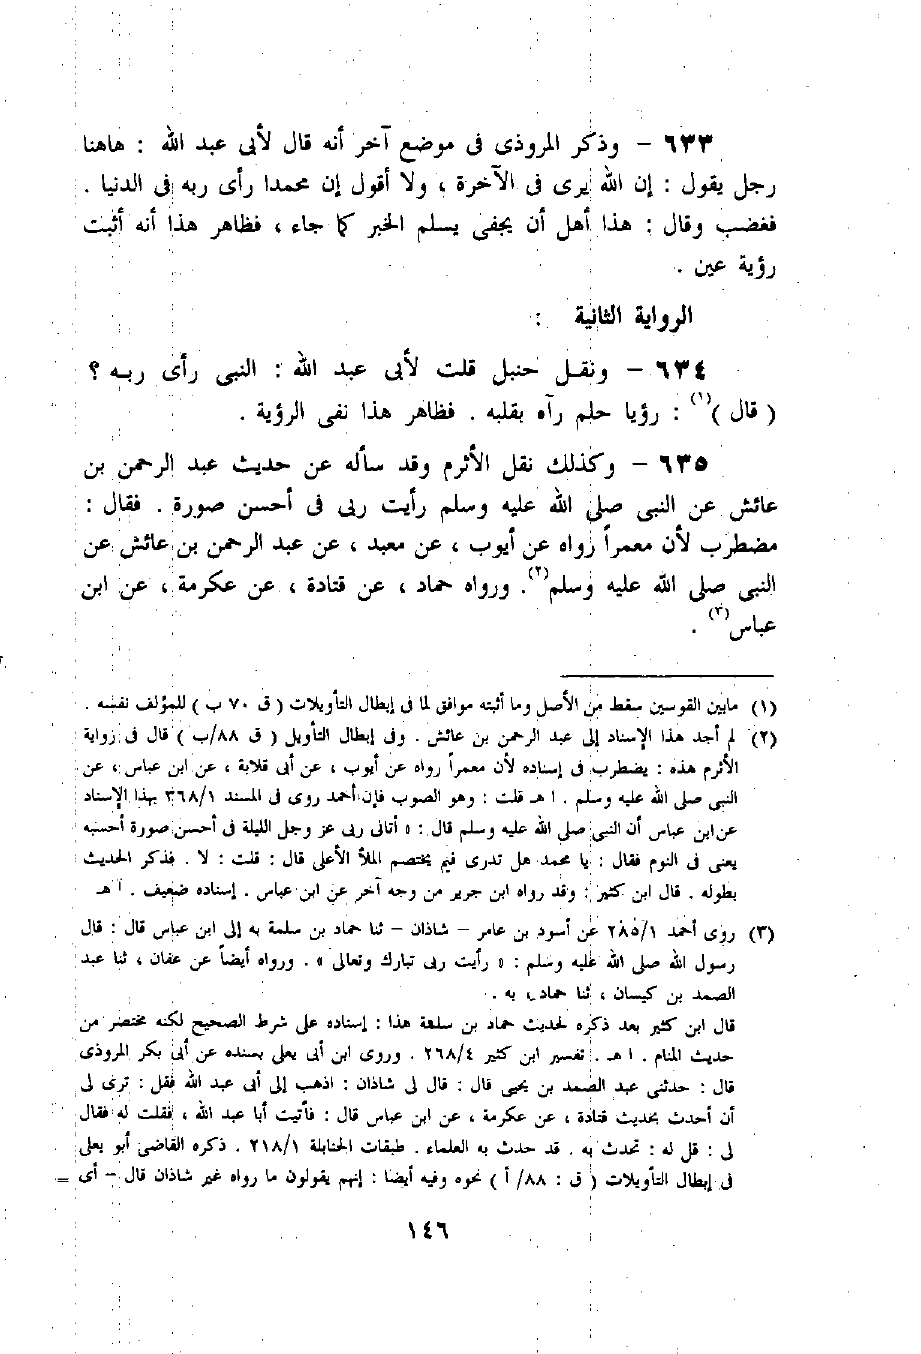 ٦٣٣ – وذكر المروذى فى موضع آخر أنه قال لأبى عبد الله : هاهنا
رجل يقول : إن الله يرى فى الآخرة ، ولا أقول إن محمدا رأى ربه فى الدنيا .
فغضب وقال : هذا أهل أن يجفى يسلم الخبر كما جاء ، فظاهر هذا أنه أثبت
رؤية عين .
الرواية الثانية :
٦٣٤ – ونقـل حنبل قلت لأبى عبد الله : النبى رأى ربـه ؟
( قال )(١) : رؤيا حلم رآه بقلبه . فظاهر هذا نفى الرؤية .
٦٣٥ – وكذلك نقل الأثرم وقد سأله عن حديث عبد الرحمن بن
عائش عن النبى صلى الله عليه وسلم رأيت ربى فى أحسن صورة . فقال :
مضطرب لأن معمراً رواه عن أيوب ، عن معبد ، عن عبد الرحمن بن عائش عن
النبى صلى الله عليه وسلم(٢). ورواه حماد ، عن قتادة ، عن عكرمة ، عن ابن
عباس(٣) .
(١) مابين القوسين سقط من الأصل وما أثبته موافق لما فى إبطال التأويلات ( ق ٧٠ ب ) للمؤلف نفسه .
(٢) لم أجد هذا الإسناد إلى عبد الرحمن بن عائش . وفى إبطال التأويل ( ق ٨٨/ب ) قال فى رواية
الأثرم هذه : يضطرب فى إسناده لأن معمراً رواه عن أيوب ، عن أبى قلابة ، عن ابن عباس ، عن
النبى صلى الله عليه وسلم . ا هـ قلت : وهو الصوب فإن أحمد روى فى المسند ٣٦٨/١ بهذا الإسناد
عن ابن عباس أن النبى صلى الله عليه وسلم قال : « أتانى ربى عز وجل الليلة فى أحسن صورة أحسبه
يعنى فى النوم فقال : يا محمد هل تدرى فيم يختصم الملأ الأعلى قال : قلت : لا . فذكر الحديث
بطوله . قال ابن كثير : وقد رواه ابن جرير من وجه آخر عن ابن عباس . إسناده ضعيف . ا هـ
(٣) روى أحمد ٢٨٥/١ عن أسود بن عامر – شاذان – ثنا حماد بن سلمة به إلى ابن عباس قال : قال
رسول الله صلى الله عليه وسلم : « رأيت ربى تبارك وتعالى » . ورواه أيضاً عن عفان ، ثنا عبد
الصمد بن كيسان ، ثنا حماد ، به .
قال ابن كثير بعد ذكره لحديث حماد بن سلمة هذا : إسناده على شرط الصحيح لكنه مختصر من
حديث المنام . ا هـ . تفسير ابن كثير ٢٦٨/٤ . وروى ابن أبى يعلى بسنده عن أبى بكر المروذى
قال : حدثنى عبد الصمد بن يحيى قال : قال لى شاذان : اذهب إلى أبى عبد الله فقل : ترى لى
أن أحدث بحديث قتادة ، عن عكرمة ، عن ابن عباس قال : فأتيت أبا عبد الله ، فقلت له فقال
لى : قل له : تحدث به . قد حدث به العلماء . طبقات الحنابلة ٢١٨/١ . ذكره القاضى أبو يعلى
فى إبطال التأويلات ( ق : ٨٨/ أ ) نحوه وفيه أيضا : إنهم يقولون ما رواه غير شاذان قال – أى =
١٤٦